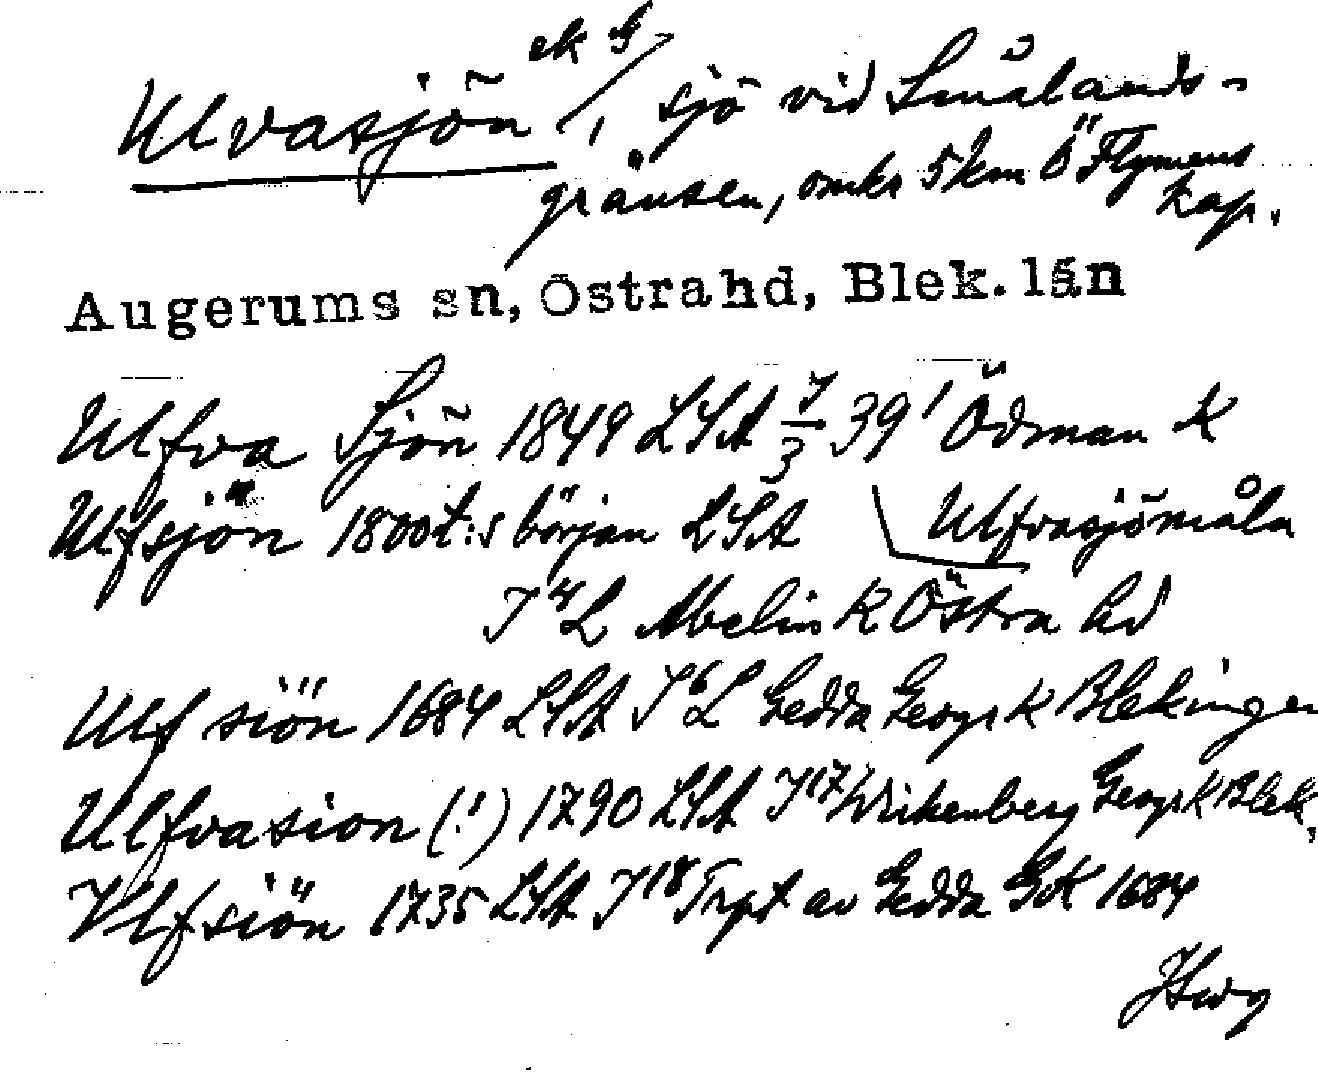 Ulvasjön ek G /, sjö vid Smålands-
gränsen, omkr 5 km Ö Flymens
kap.
Augerums sn, Östrahd, Blek. län
Ulfva Sjön 1849 LSA 7/3 39¹ Ödman K
Ulfsjön 1800t:s början LSA Ulfvasjömåla
J⁴L Abelin K Östra hd
Ulf siön 1684 LSA J⁶L Gedda Geogr K Blekingen
Ulfvasion (!) 1790 LSA J¹⁷ Wirkenberg Geogr K Blek.
Vlfsiön 1735 LSA J¹⁸ Trpt av Gedda GK 1684